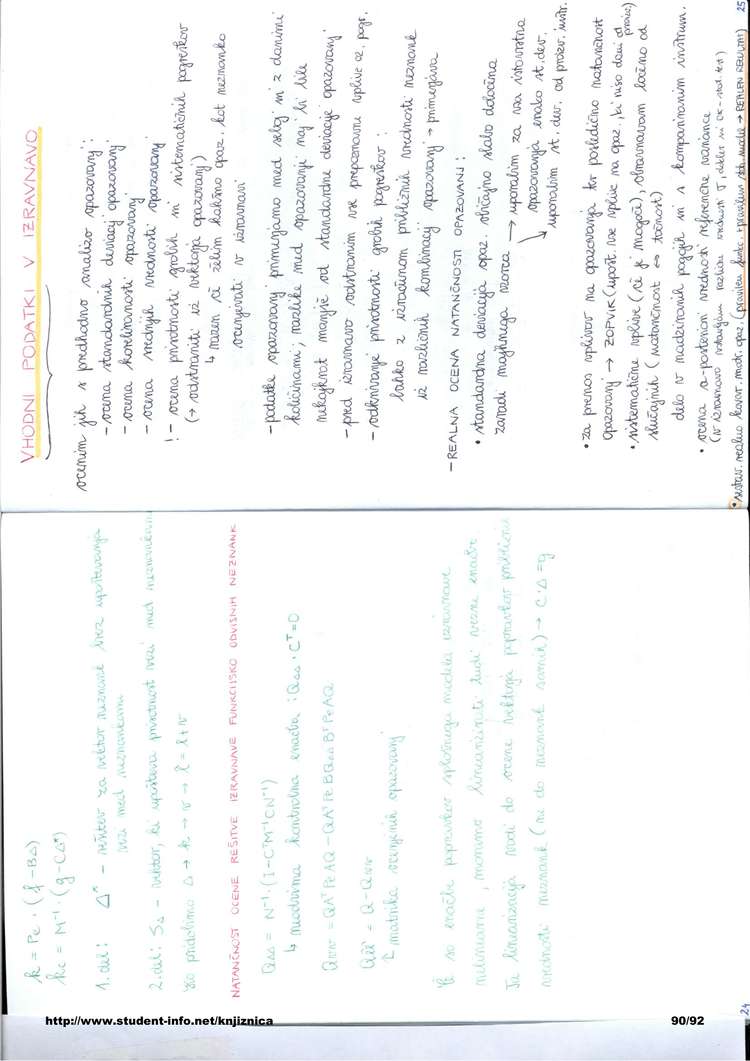 k = Pe · (f - BΔ)
kc = M⁻¹ · (g - CΔ°)
1. del: Δ° - rešitev za vektor neznank brez upoštevanja
vezi med neznankami
2. del: SΔ - vektor, ki upošteva prisotnost vezi med neznankami
ko pridobimo Δ → k → v → l̂ = l + v
NATANČNOST OCENE REŠITVE IZRAVNAVE FUNKCIJSKO ODVISNIH NEZNANK
QΔΔ = N⁻¹ · (I - CᵀM⁻¹CN⁻¹)
↳ neodvisna kontrolna enačba : QΔΔ · Cᵀ = 0
Qvv = QAᵀPeAQ - QAᵀPeBQΔΔBᵀPeAQ
Ql̂l̂ = Q - Qvv
matrika ocenjenih opazovanj
Če so enačbe popravkov splošnega modela izravnave
nelinearne, moramo linearizirati tudi vezne enačbe
Ta linearizacija vodi do ocene vektorja popravkov približnih
vrednosti neznank (ne do neznank samih) → C·Δ = g
24
VHODNI PODATKI V IZRAVNAVO
ocenimo jih s predhodno analizo opazovanj:
- ocena standardnih deviacij opazovanj
- ocena koreliranosti opazovanj
- ocena srednjih vrednosti opazovanj
! - ocena prisotnosti grobih in sistematičnih pogreškov
(→ odstraniti iz vektorja opazovanj)
↳ razen če želim kakšno opaz. kot neznanko
ocenjevati v izravnavi
- podatke opazovanj primerjamo med seboj in z danimi
količinami; razlike med opazovanji naj bi bile
nekajkrat manjše od standardne deviacije opazovanj
- pred izravnavo odstranim vse prepoznavne vplive oz. pogr.
- odkrivanje prisotnosti grobih pogreškov:
lahko z izračunom približnih vrednosti neznank
iz različnih kombinacij opazovanj → primerjava
- REALNA OCENA NATANČNOSTI OPAZOVANJ:
• standardna deviacija opaz. običajno slabo določena
zaradi majhnega vzorca → uporabim za vsa istovrstna
opazovanja enako st. dev.
↘ uporabim st. dev. od proizv. instr.
• za prenos vplivov na opazovanja ter posledično natančnost
opazovanj → ZOPVIK (upošt. vse vplive na opaz., ki niso dani od proizv.)
• sistematične vplive (če je mogoče), obravnavam ločeno od
slučajnih (natančnost ↔ točnost)
delo v nadziranih pogojih in s kompariranim instrum.
• ocena a-posteriori vrednosti referenčne variance
(v izravnavo vstavljam različne vrednosti σ, dokler ni OK - stat. test)
• ustav. realno kovar. matr. opaz. (pravilen funkc. + pravilen stoh. model → REALEN REZULTAT)
25
http://www.student-info.net/knjiznica
90/92